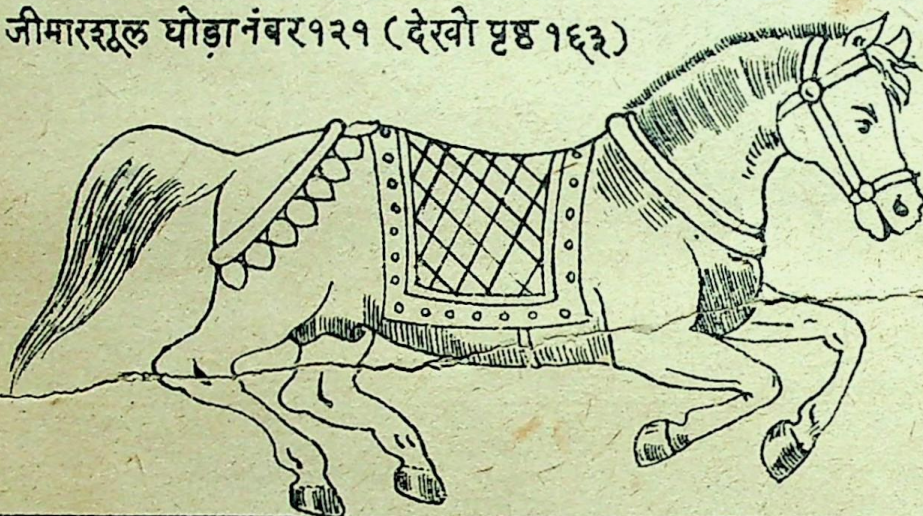 जीमारशूल घोड़ा नंबर १२१ (देखो पृष्ठ १६३)